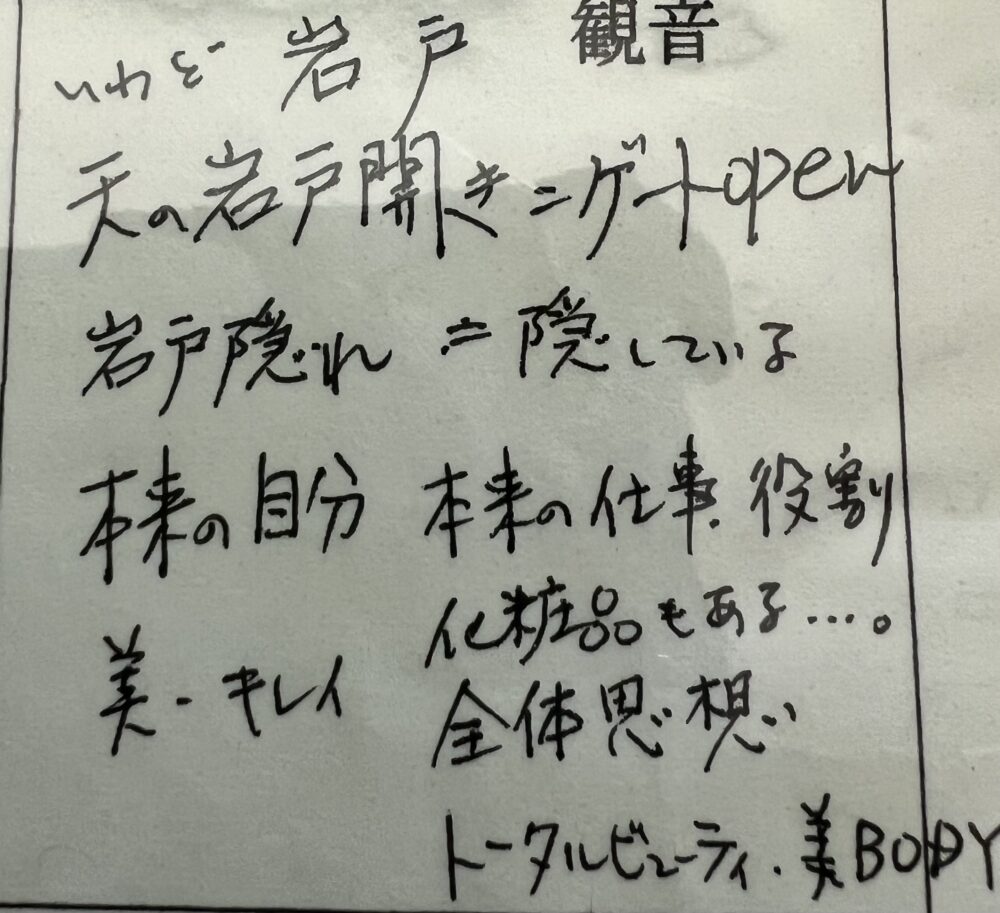 観音
いわど 岩戸
天の岩戸開き=ゲートopen
岩戸隠れ ≒ 隠している
本来の自分 本来の仕事.役割
化粧品もある…。
美・キレイ
全体思想
トータルビューティ.美BODY